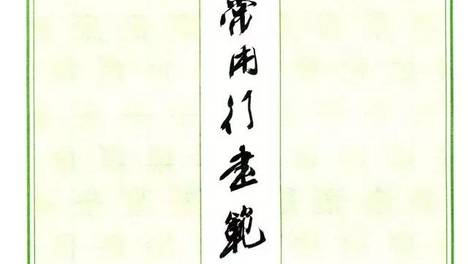 常用行書範